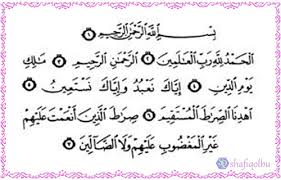 بِسْمِ اللَّهِ الرَّحْمَٰنِ الرَّحِيمِ ١
الْحَمْدُ لِلَّهِ رَبِّ الْعَالَمِينَ ٢ الرَّحْمَٰنِ الرَّحِيمِ ٣ مَالِكِ
يَوْمِ الدِّينِ ٤ إِيَّاكَ نَعْبُدُ وَإِيَّاكَ نَسْتَعِينُ ٥
اهْدِنَا الصِّرَاطَ الْمُسْتَقِيمَ ٦ صِرَاطَ الَّذِينَ أَنْعَمْتَ عَلَيْهِمْ
غَيْرِ الْمَغْضُوبِ عَلَيْهِمْ وَلَا الضَّالِّينَ ٧
shafiqolbu